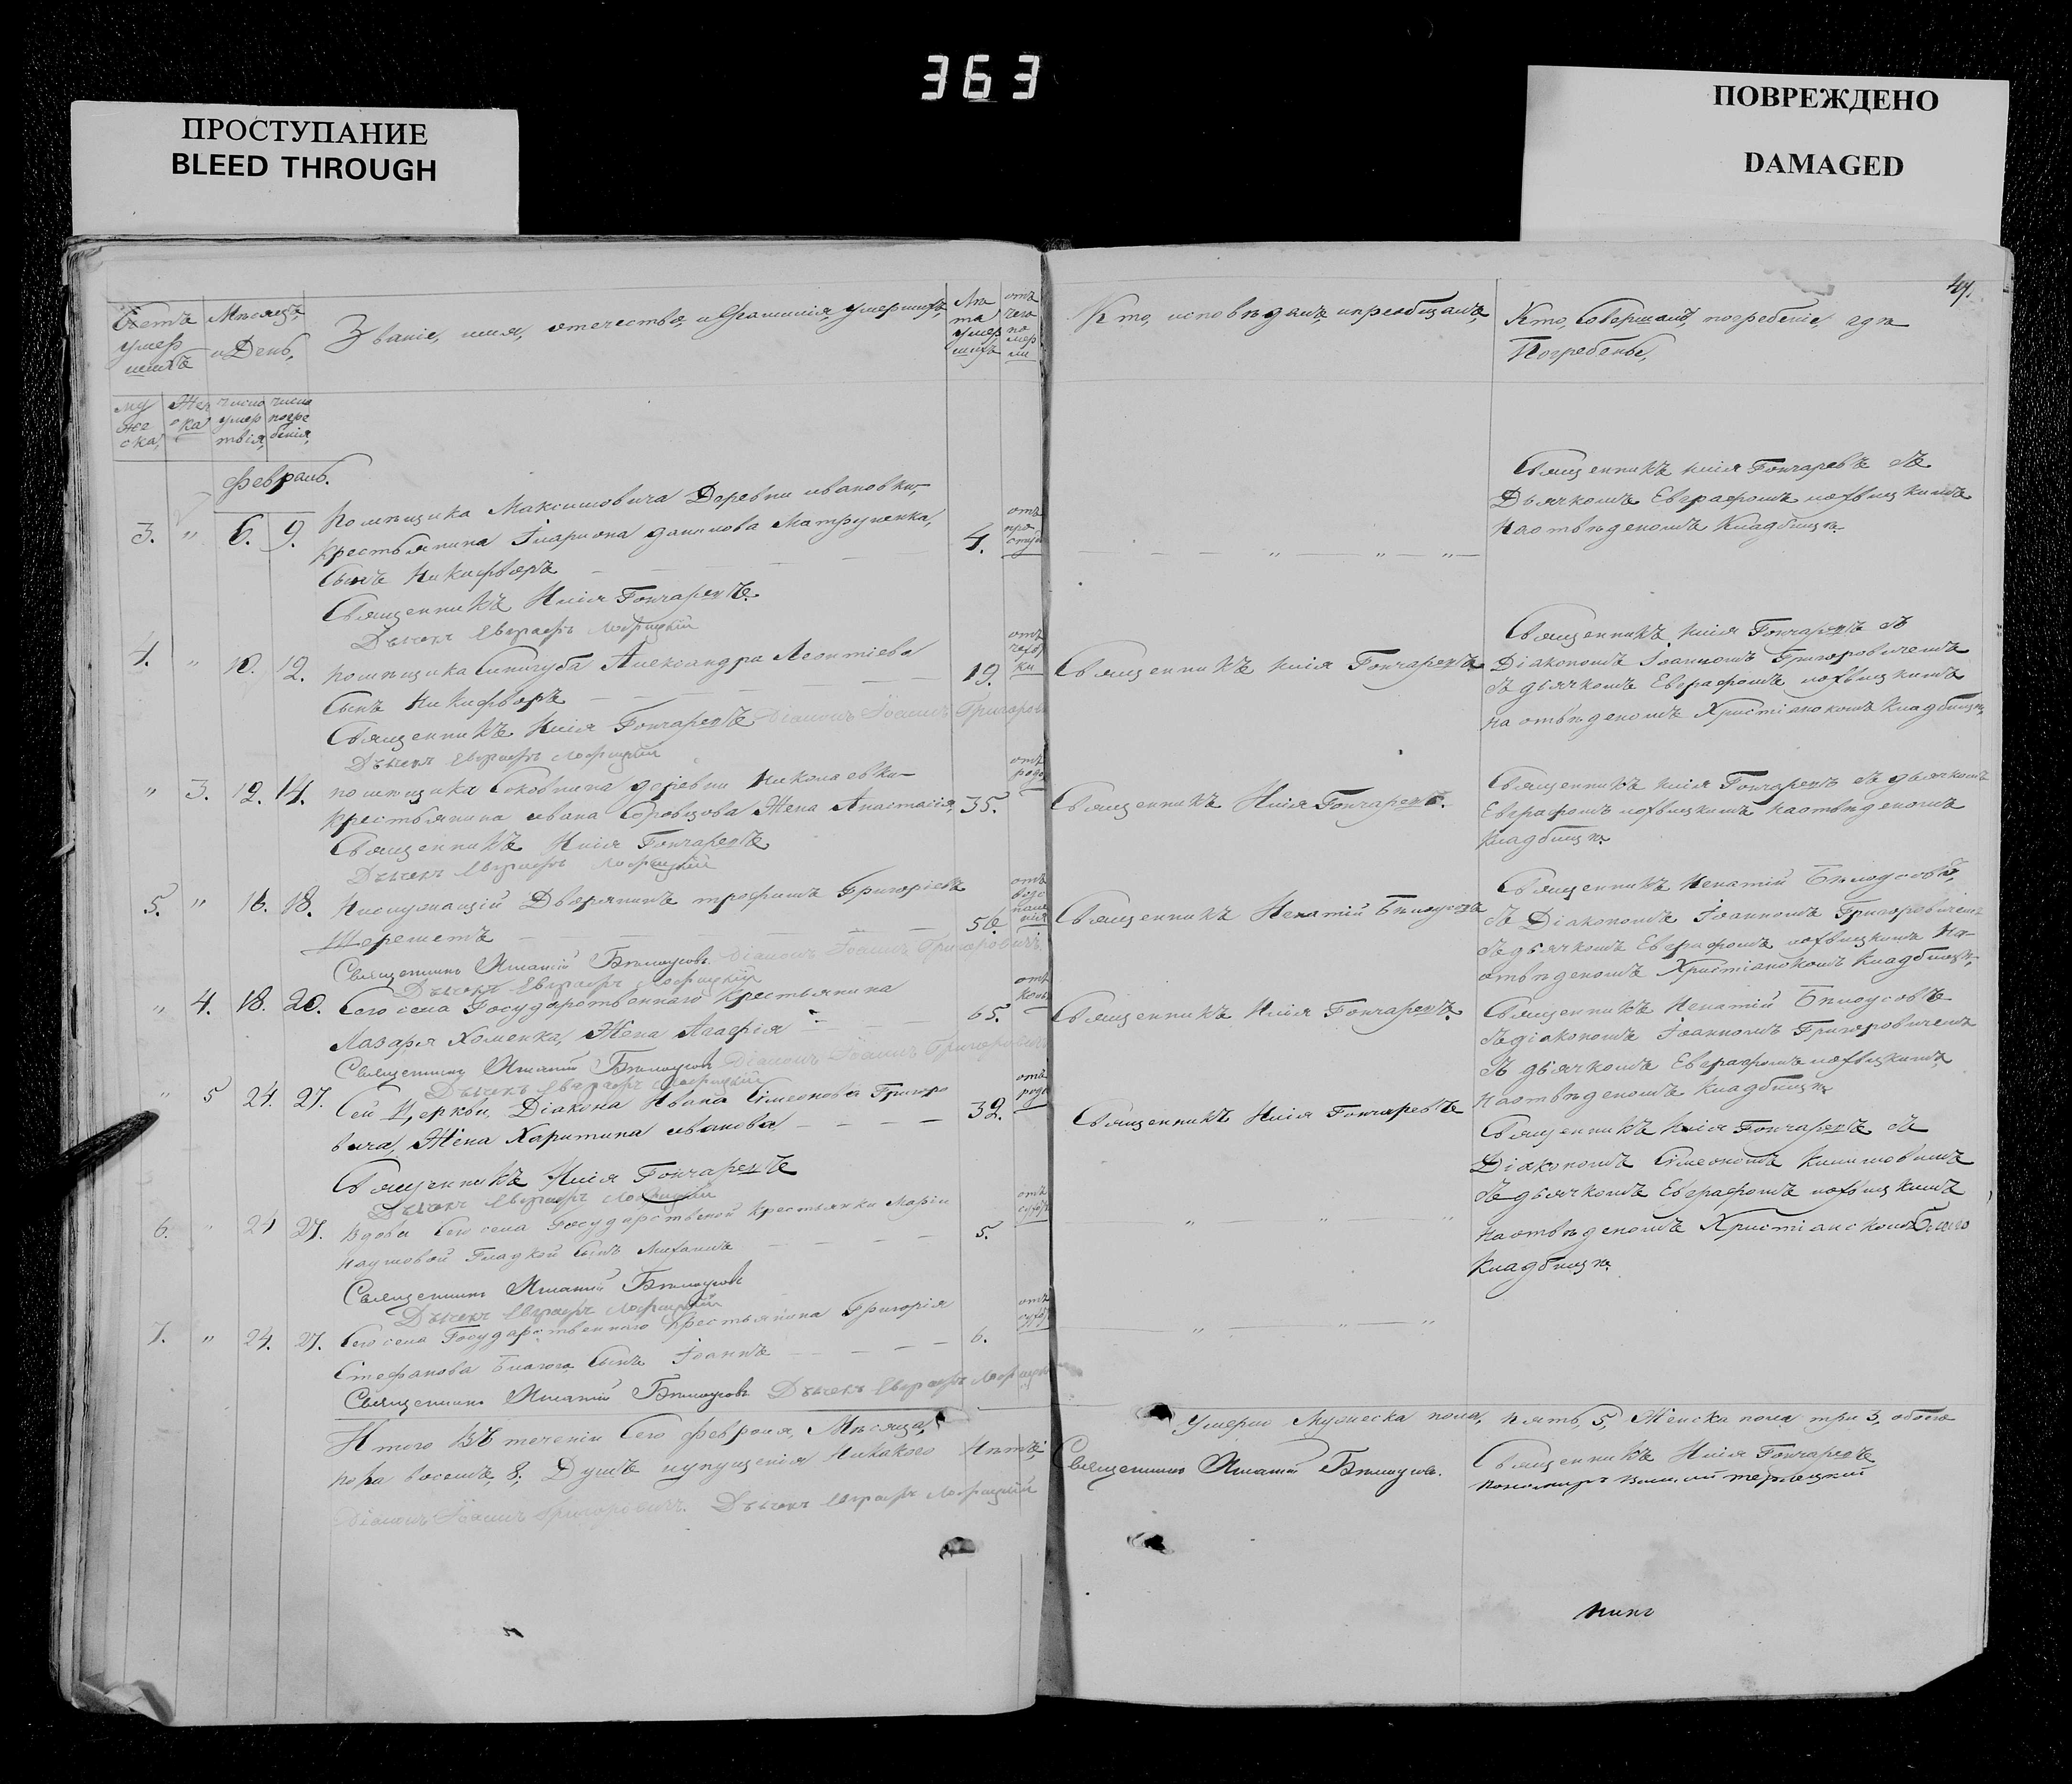 363
ПРОСТУПАНИЕ
BLEED THROUGH
ПОВРЕЖДЕНО
DAMAGED
47.
Счетъ умершихъ
Мѣсяцъ, и День,
Званіе, имя, отечество, и Фамилія умершихъ,
Лѣта умершихъ
отъ чего померли
Кто, исповѣдалъ, и пріобщалъ,
Кто, Совершалъ, погребеніе, и гдѣ
Погребены,
мужеска,
Женска
число умертвія,
число погребенія,
Февраль.
3. " 6. 9.
Помѣщика Максимовича Деревни Ивановки,
крестьянина Иларіона Данилова
Сынъ Никифоръ
4.
отъ простуды
Священникъ Илія Гончаревъ съ
Дьячкомъ Евграфомъ Лохвицкимъ
На отвѣденомъ Кладбищѣ.
Священникъ Илія Гончаревъ.
Дьячекъ Евграфъ Лохвицкій
4. " 10. 12.
помѣщика Александра Леонтіева
Сынъ Никифоръ
19.
Священникъ Илія Гончаревъ.
Священникъ Илія Гончаревъ съ
Діакономъ Іоанномъ Григоровичемъ
съ дьячкомъ Евграфомъ Лохвицкимъ
на отвѣденомъ Христіанскомъ Кладбищѣ.
Священникъ Илія Гончаревъ Діаконъ Іоаннъ Григоровичъ
Дьячекъ Евграфъ Лохвицкій
" 3. 12. 14.
помѣщика деревни Николаевки
крестьянина Ивана Жена Анастасія,
35.
отъ родо
Священникъ Илія Гончаревъ.
Священникъ Илія Гончаревъ съ дьячкомъ
Евграфомъ Лохвицкимъ на отвѣденомъ
Кладбищѣ.
Священникъ Илія Гончаревъ
Дьячекъ Евграфъ Лохвицкій
5. " 16. 18.
Неслужащій Дворянинъ Трофимъ Григоріевъ
Шереметъ
56
Священникъ Игнатій Бѣлоусовъ
Священникъ Игнатій Бѣлоусовъ,
съ Діакономъ Іоанномъ Григоровичемъ
съ дьячкомъ Евграфомъ Лохвицкимъ На
отвѣденомъ Христіанскомъ Кладбищѣ.
Священникъ Игнатій Бѣлоусовъ. Діаконъ Іоаннъ Григоровичъ
Дьячекъ Евграфъ Лохвицкій
" 4. 18. 20.
Сего села Государственнаго Крестьянина
Лазаря Хоменка, Жена Агафія
65.
Священникъ Илія Гончаревъ.
Священникъ Игнатій Бѣлоусовъ
съ діакономъ Іоанномъ Григоровичемъ
съ дьячкомъ Евграфомъ Лохвицкимъ,
На отвѣденомъ Кладбищѣ.
Священникъ Игнатій Бѣлоусовъ Діаконъ Іоаннъ Григоровичъ
Дьячекъ Евграфъ Лохвицкій
" 5 24. 27.
Сей Церкви, Діакона Ивана Сімеонова Григоро
вича, Жена Харитина Иванова
32.
отъ родо
Священникъ Илія Гончаревъ
Священникъ Илія Гончаревъ съ
Діакономъ Сімеономъ
съ дьячкомъ Евграфомъ Лохвицкимъ
На отвѣденомъ Христіанскомъ
Кладбищѣ.
Священникъ Илія Гончаревъ
Дьячекъ Евграфъ Лохвицкій
6. " 24 27.
Вдовы Сего села Государственой Крестьянки Маріи
Наумовой Гладкой Сынъ Михаилъ
5.
Священникъ Игнатій Бѣлоусовъ
Дьячекъ Евграфъ Лохвицкій
7. " 24. 27.
Сего села Государственнаго Крестьянина Григорія
Стефанова Сынъ Іоаннъ
6.
Священникъ Игнатій Бѣлоусовъ Дьячекъ Евграфъ Лохвицкій
Итого Въ теченіи Сего февраля, Мѣсяца,
Умерли Мужеска пола, пять, 5, Женска пола три 3, обоего
пола восемь, 8, Душъ, упущенія Никакого Нѣтъ
Священникъ Игнатій Бѣлоусовъ.
Священникъ Илія Гончаревъ
Діаконъ Іоаннъ Григоровичъ. Дьячекъ Евграфъ Лохвицкій